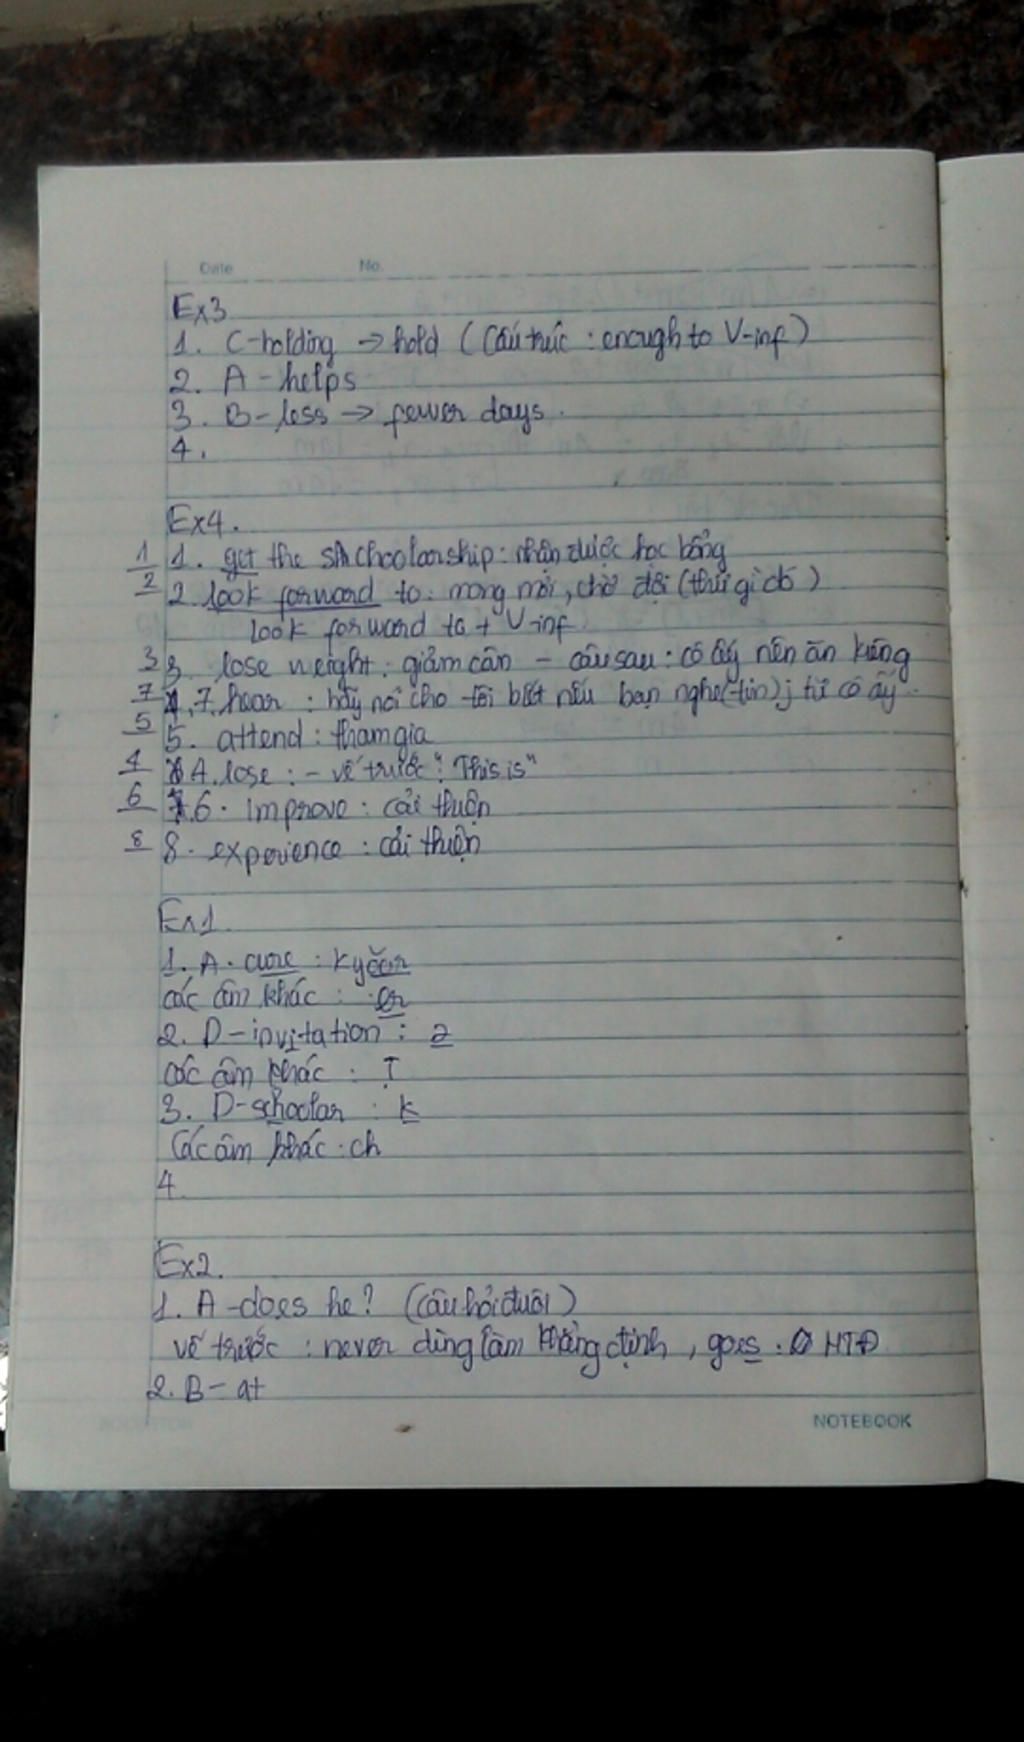 Date No.
Ex3
1. C-holding → hold (Cấu trúc : enough to V-inf)
2. A - helps
3. B-less → fewer days.
4.
Ex4.
1 1. get the schoolarship: nhận được học bổng
2 2 look forward to: mong mỏi, chờ đợi (thứ gì đó)
look forward to + V-inf
3 3. lose weight: giảm cân - câu sau: cô ấy nên ăn kiêng
7 7. hear : hãy nói cho tôi biết nếu bạn nghe (tin) j từ cô ấy.
5 5. attend: tham gia
4 4. lose : - vế trước "This is"
6 6. improve : cải thiện
8 8. experience : cải thiện
Ex1.
1. A. cure : kyơər
các âm khác : ər
2. D-invitation : ə
các âm khác : I
3. D-schoolar : k
Các âm khác : ch
4.
Ex2.
1. A-does he? (câu hỏi đuôi)
vế trước : never dùng làm khẳng định, goes : HTĐ
2. B- at
NOTEBOOK